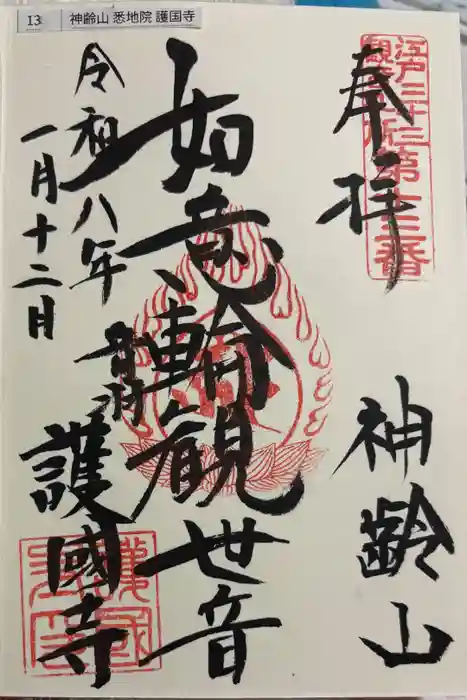 13 神齢山 悉地院 護国寺
奉拝
江戸三十三
観音札所第十三番
神齢山
如意輪観世音
音羽
護國寺
令和八年
一月十二月